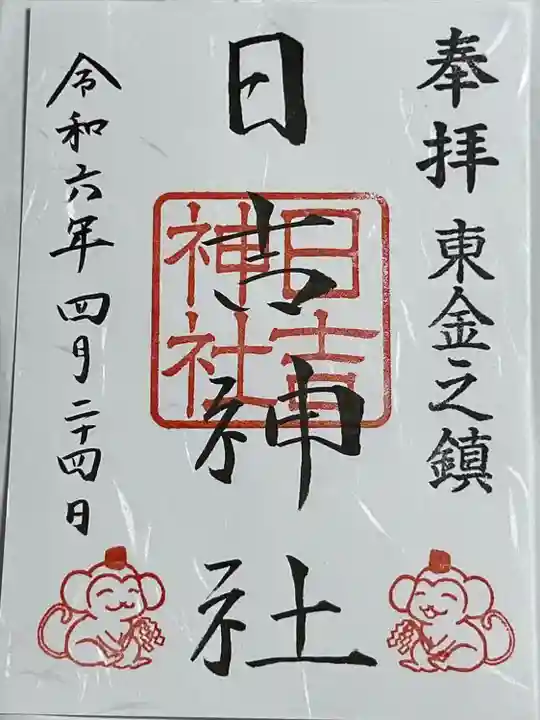 奉拝 東金之鎮
日吉神社
日吉
神社
令和六年四月二十四日